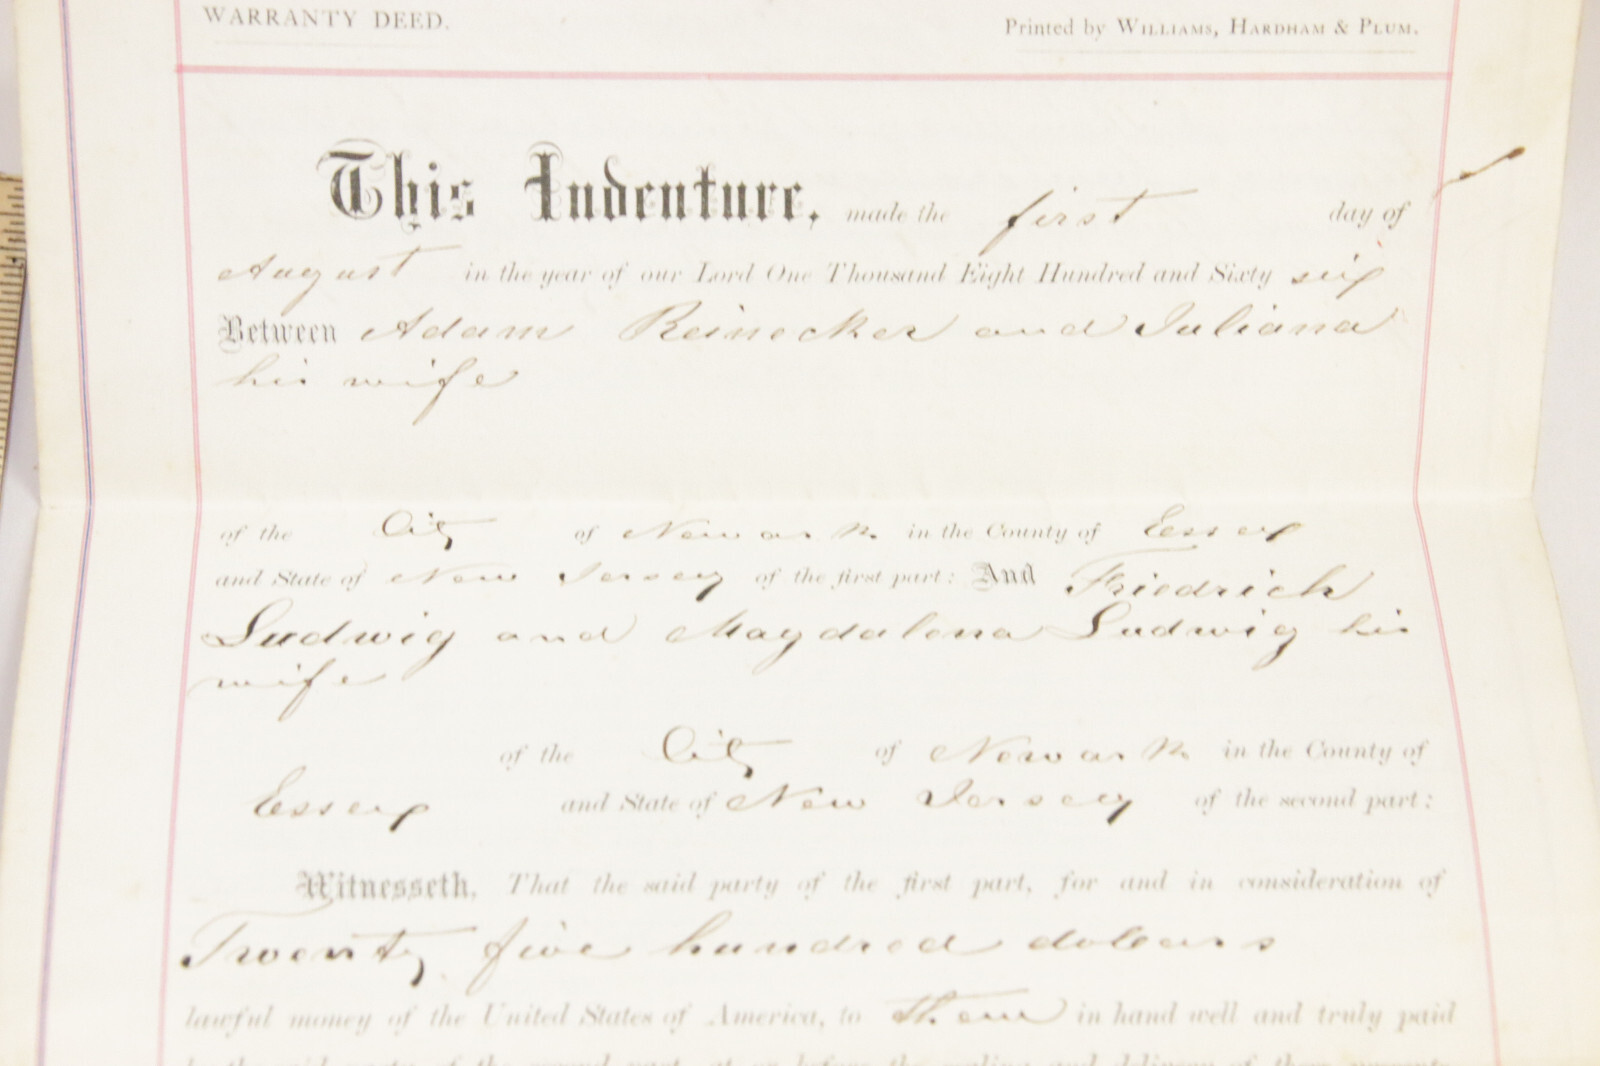 WARRANTY DEED.
Printed by WILLIAMS, HARDHAM & PLUM.
This Indenture, made the first day of
August in the year of our Lord One Thousand Eight Hundred and Sixty six
Between Adam Reinecker and Juliana
his wife
of the City of Newark in the County of Essex
and State of New Jersey of the first part: And Friedrich
Ludwig and Magdalena Ludwig his
wife
of the City of Newark in the County of
Essex and State of New Jersey of the second part:
Witnesseth, That the said party of the first part, for and in consideration of
Twenty five hundred dollars
lawful money of the United States of America, to them in hand well and truly paid